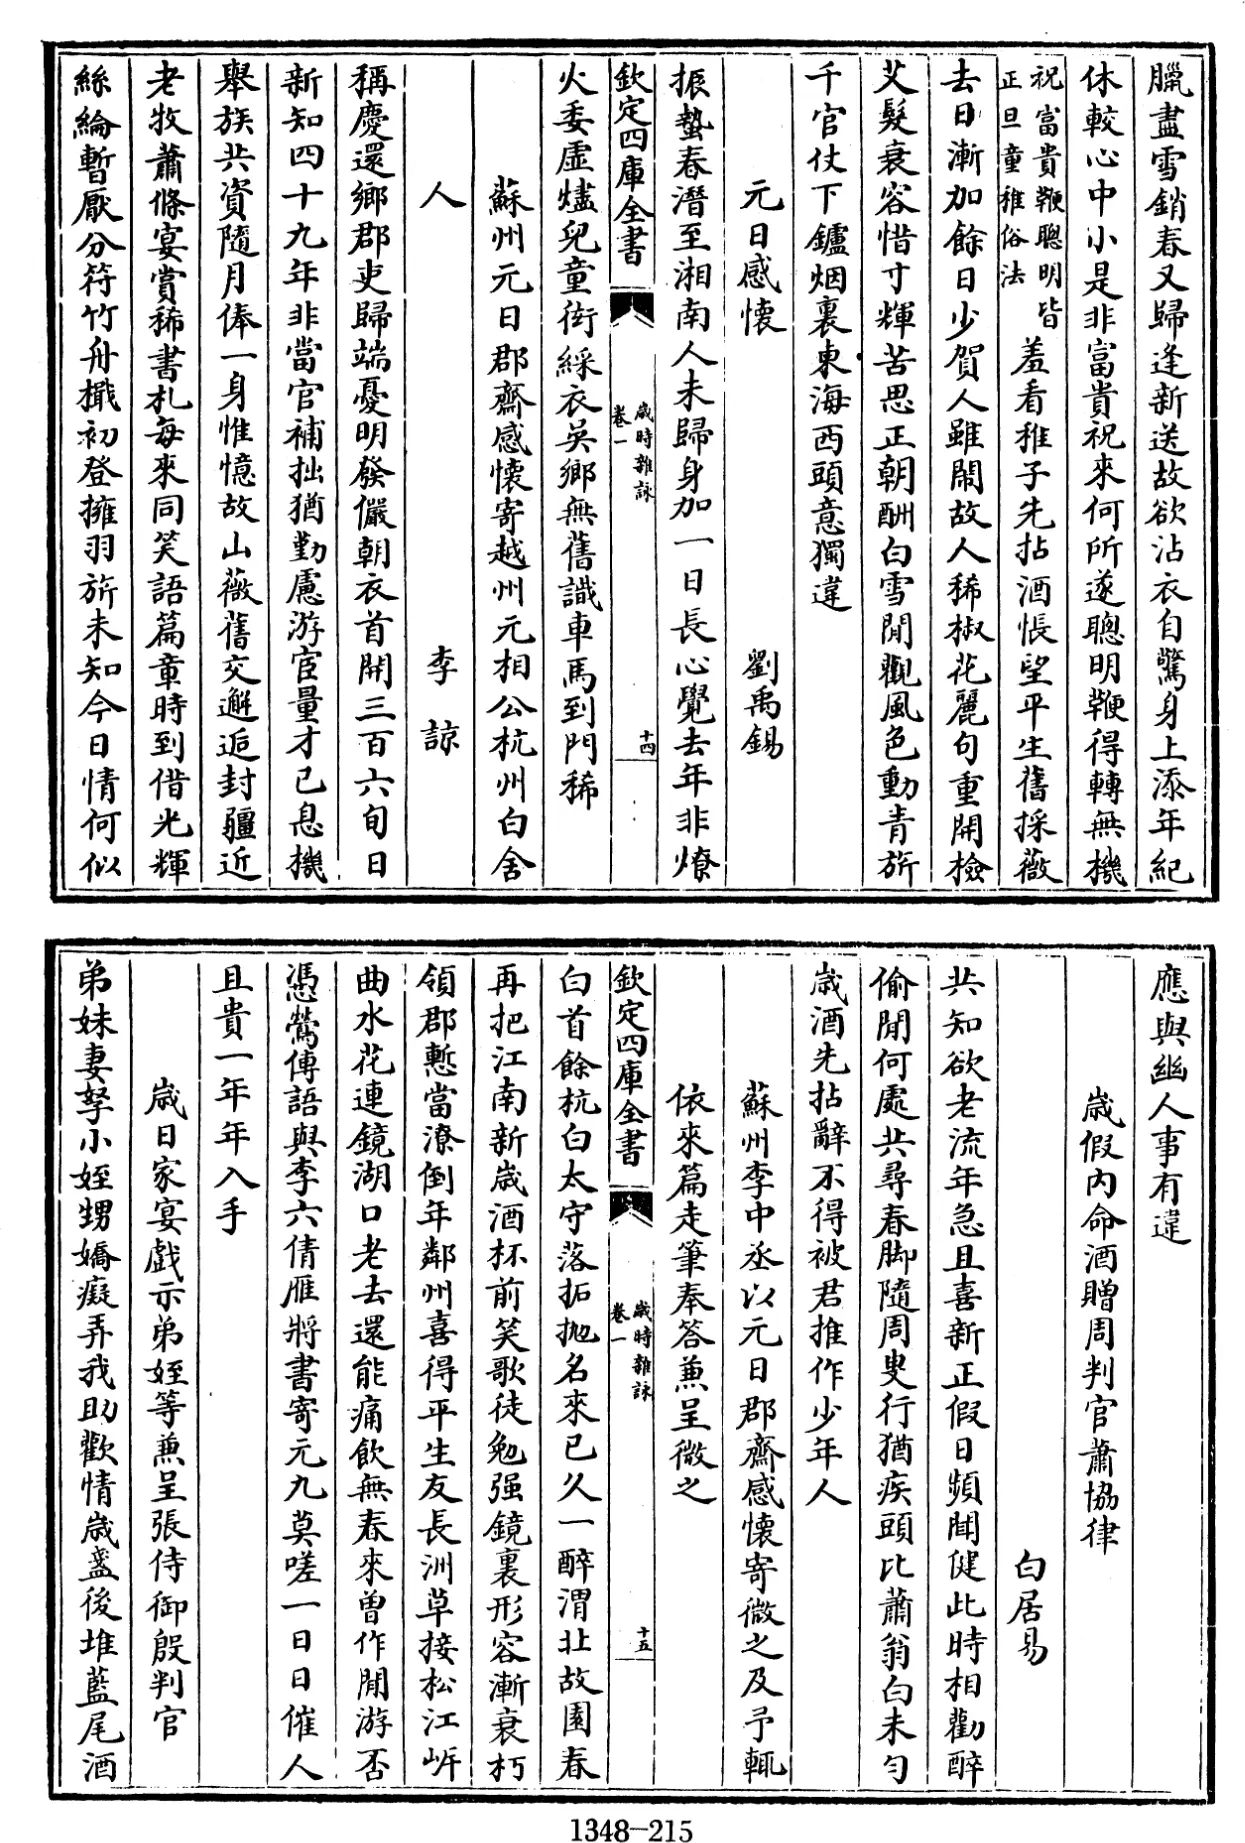 臘盡雪銷春又歸逢新送故欲沾衣自驚身上添年紀
休較心中小是非富貴祝來何所遂聰明鞭得轉無機
祝富貴鞭聰明皆
正旦童稚俗法
羞看稚子先拈酒悵望平生舊採薇
去日漸加餘日少賀人雖鬧故人稀椒花麗句重開檢
艾髮衰容惜寸輝苦思正朝酬白雪閒觀風色動青旂
千官仗下鑪烟裏東海西頭意獨違
元日感懷 劉禹錫
振蟄春潛至湘南人未歸身加一日長心覺去年非燎
欽定四庫全書 歲時雜詠
卷一 十四
火委虛燼兒童衒綵衣吳鄉無舊識車馬到門稀
蘇州元日郡齋感懷寄越州元相公杭州白舍
人 李諒
稱慶還鄉郡吏歸端憂明發儼朝衣首開三百六旬日
新知四十九年非當官補拙猶勤慮游宦量才已息機
舉族共資隨月俸一身惟憶故山薇舊交邂逅封疆近
老牧蕭條宴賞稀書札每來同笑語篇章時到借光輝
絲綸暫厭分符竹舟檝初登擁羽旂未知今日情何似
應與幽人事有違
歲假内命酒贈周判官蕭協律
白居易
共知欲老流年急且喜新正假日頻聞健此時相勸醉
偷閒何處共尋春脚隨周叟行猶疾頭比蕭翁白未匀
歲酒先拈辭不得被君推作少年人
蘇州李中丞以元日郡齋感懷寄微之及予輒
依來篇走筆奉答兼呈微之
欽定四庫全書 歲時雜詠
卷一 十五
白首餘杭白太守落拓抛名來已久一醉渭北故園春
再把江南新歲酒杯前笑歌徒勉强鏡裏形容漸衰朽
領郡慙當潦倒年鄰州喜得平生友長洲草接松江岍
曲水花連鏡湖口老去還能痛飲無春來曾作閒游否
憑鶯傳語與李六倩雁將書寄元九莫嗟一日日催人
且貴一年年入手
歲日家宴戲示弟姪等兼呈張侍御殷判官
弟妹妻孥小姪甥嬌癡弄我助歡情歲盞後堆藍尾酒
1348-215